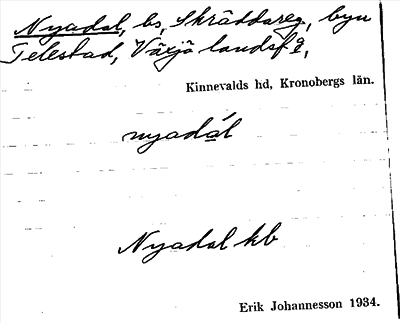 Nyadal, bs, Skräddareg, byn
Telestad, Växjö landsf g,
Kinnevalds hd, Kronobergs län.
nyadál
Nyadal kb
Erik Johannesson 1934.